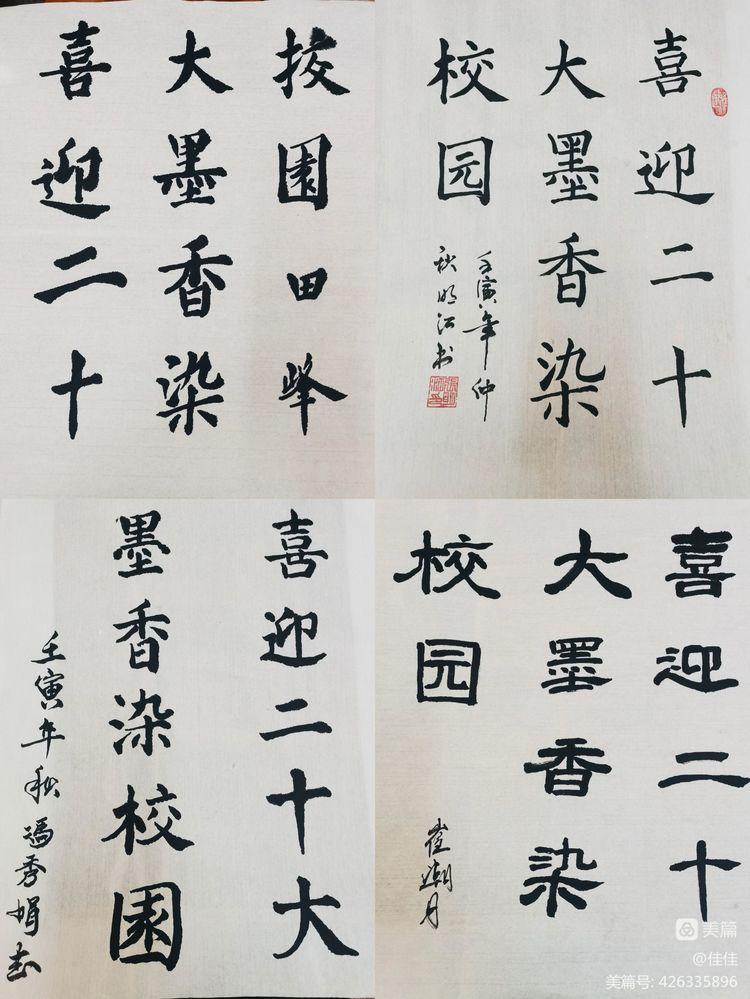 喜迎二十
大墨香染
挍園田峰
喜迎二十
大墨香染
校园
壬寅年仲
秋明江书
喜迎二十大
墨香染校園
壬寅年秋馮秀娟书
喜迎二十
大墨香染
校园
崔潮月
美篇
@佳佳
美篇号: 426335896